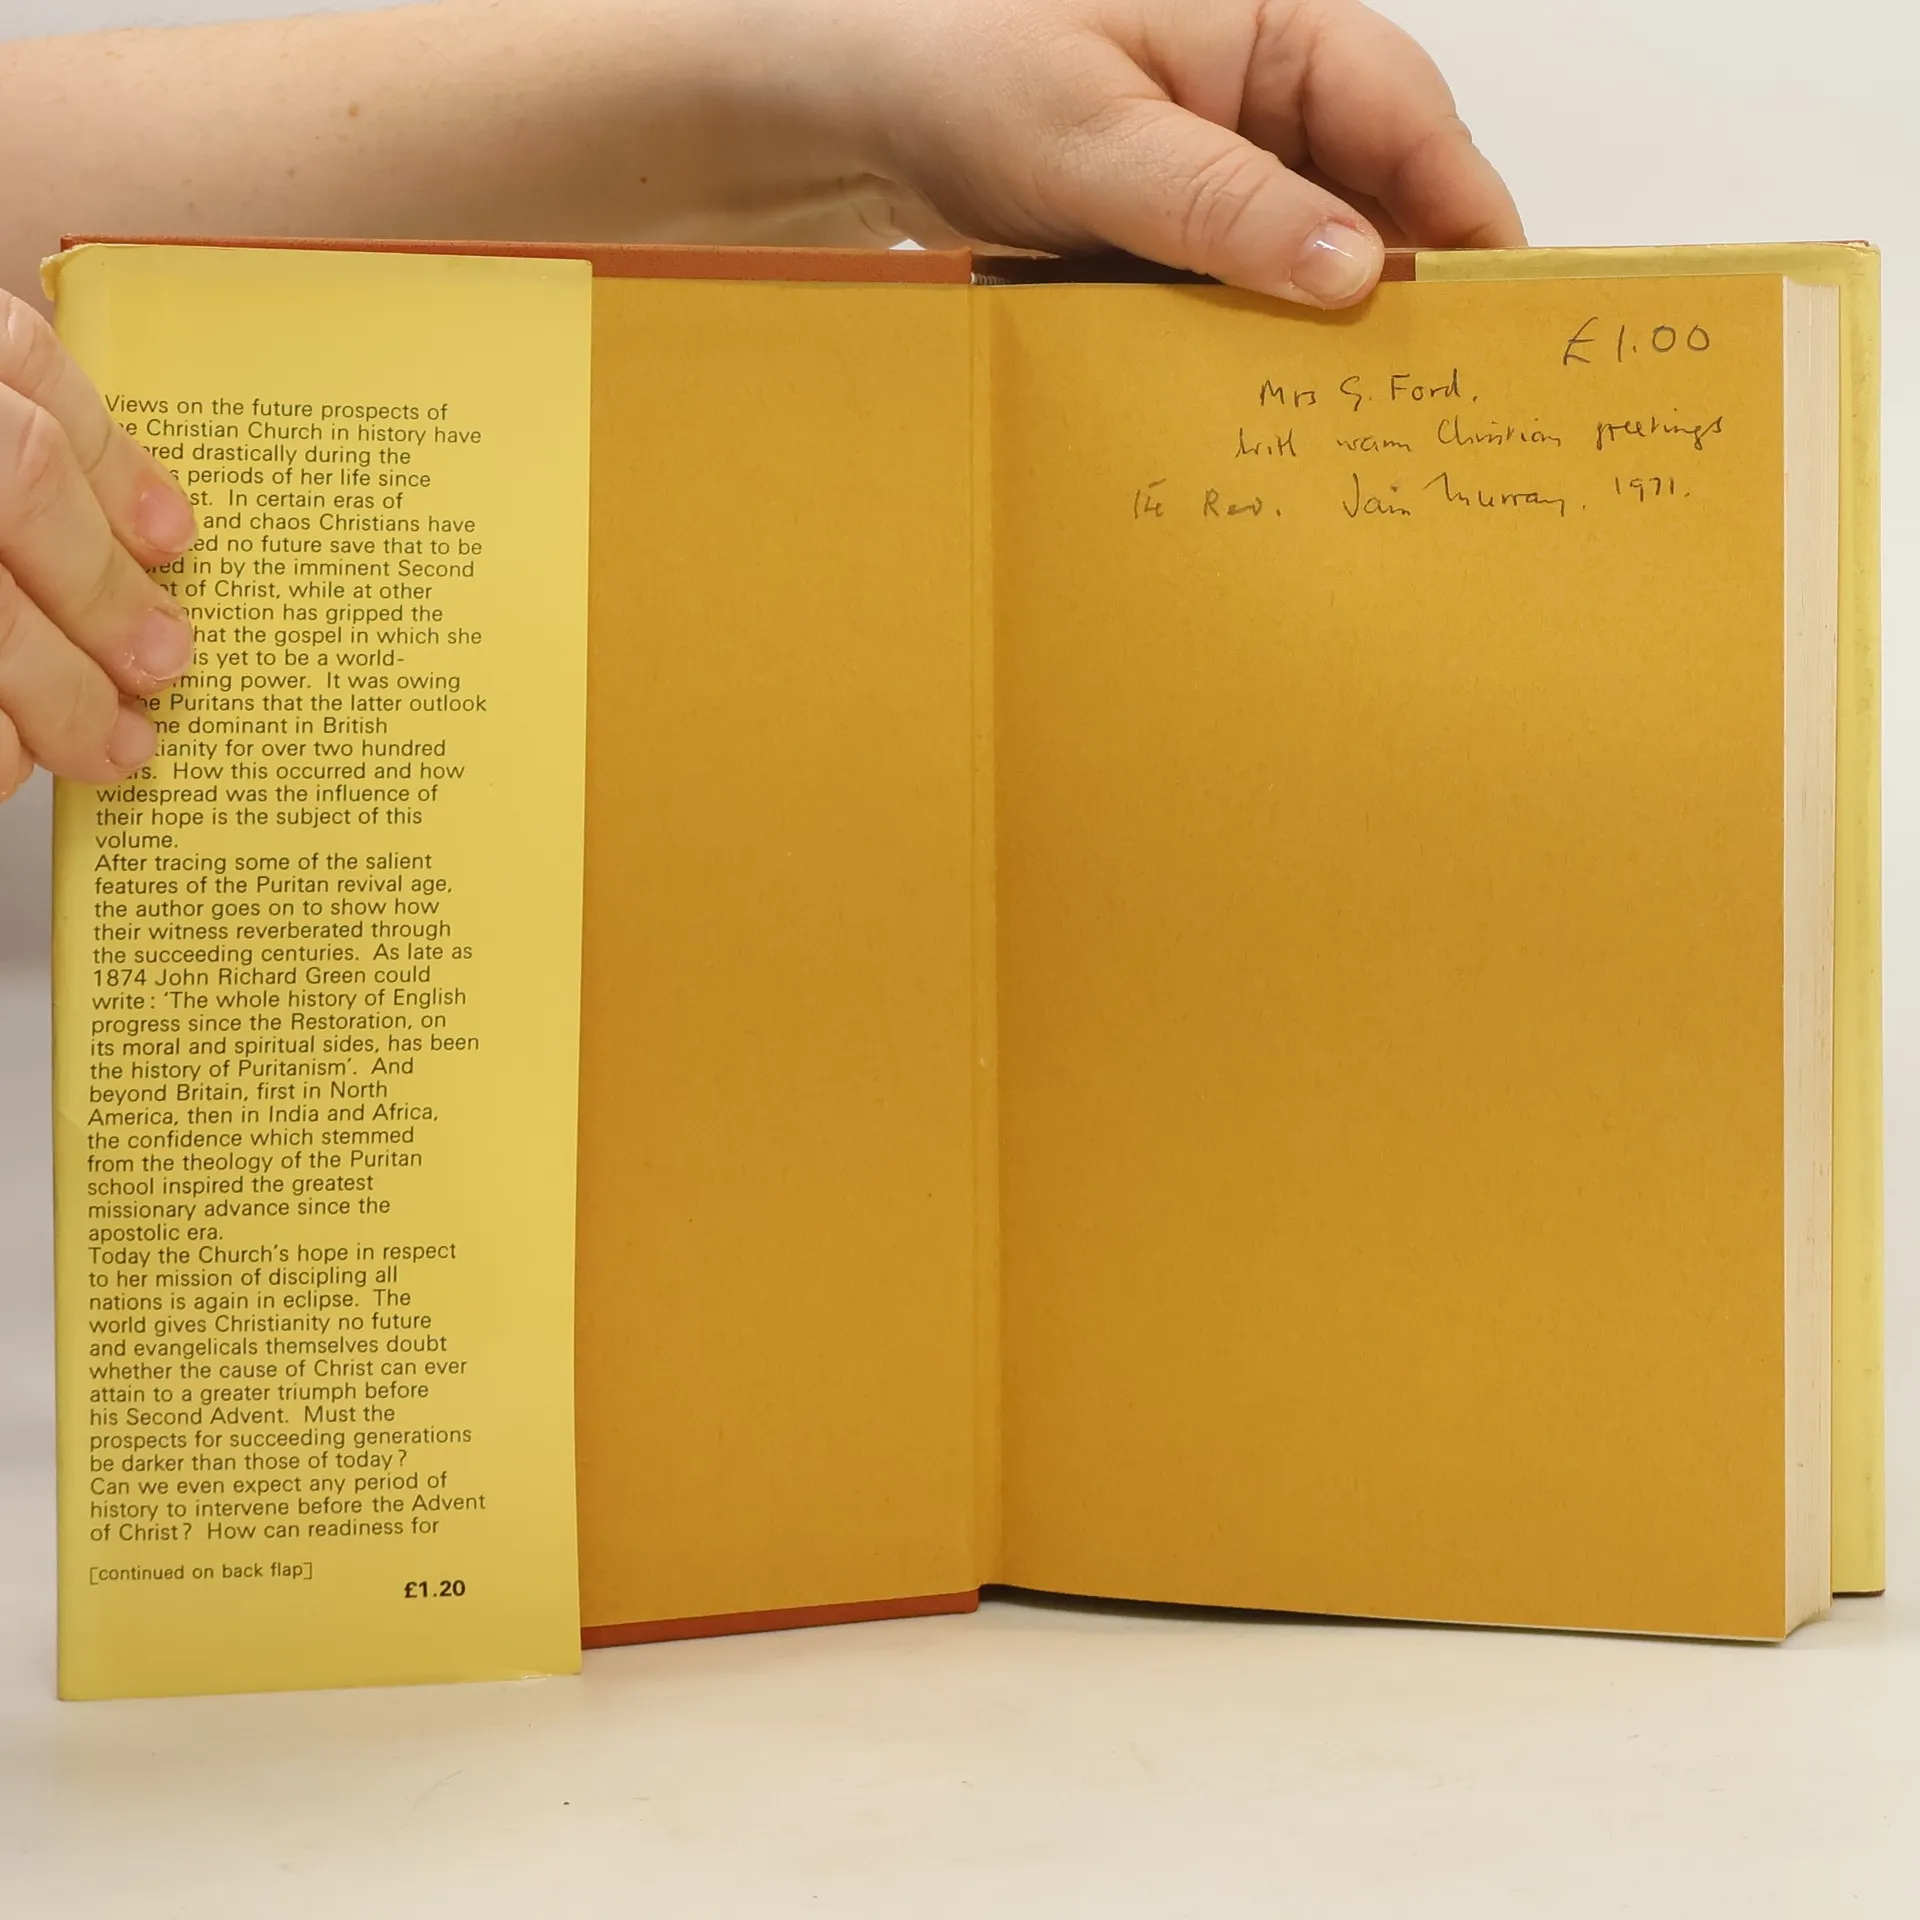 Views on the future prospects of
e Christian Church in history have
red drastically during the
s periods of her life since
st. In certain eras of
and chaos Christians have
ed no future save that to be
red in by the imminent Second
t of Christ, while at other
nviction has gripped the
hat the gospel in which she
is yet to be a world-
ming power. It was owing
he Puritans that the latter outlook
me dominant in British
tianity for over two hundred
rs. How this occurred and how
widespread was the influence of
their hope is the subject of this
volume.
After tracing some of the salient
features of the Puritan revival age,
the author goes on to show how
their witness reverberated through
the succeeding centuries. As late as
1874 John Richard Green could
write: 'The whole history of English
progress since the Restoration, on
its moral and spiritual sides, has been
the history of Puritanism'. And
beyond Britain, first in North
America, then in India and Africa,
the confidence which stemmed
from the theology of the Puritan
school inspired the greatest
missionary advance since the
apostolic era.
Today the Church's hope in respect
to her mission of discipling all
nations is again in eclipse. The
world gives Christianity no future
and evangelicals themselves doubt
whether the cause of Christ can ever
attain to a greater triumph before
his Second Advent. Must the
prospects for succeeding generations
be darker than those of today?
Can we even expect any period of
history to intervene before the Advent
of Christ? How can readiness for
[continued on back flap]
£1.20
£1.00
Mrs G. Ford.
With warm Christian greetings
Rev. Iain Murray. 1971.